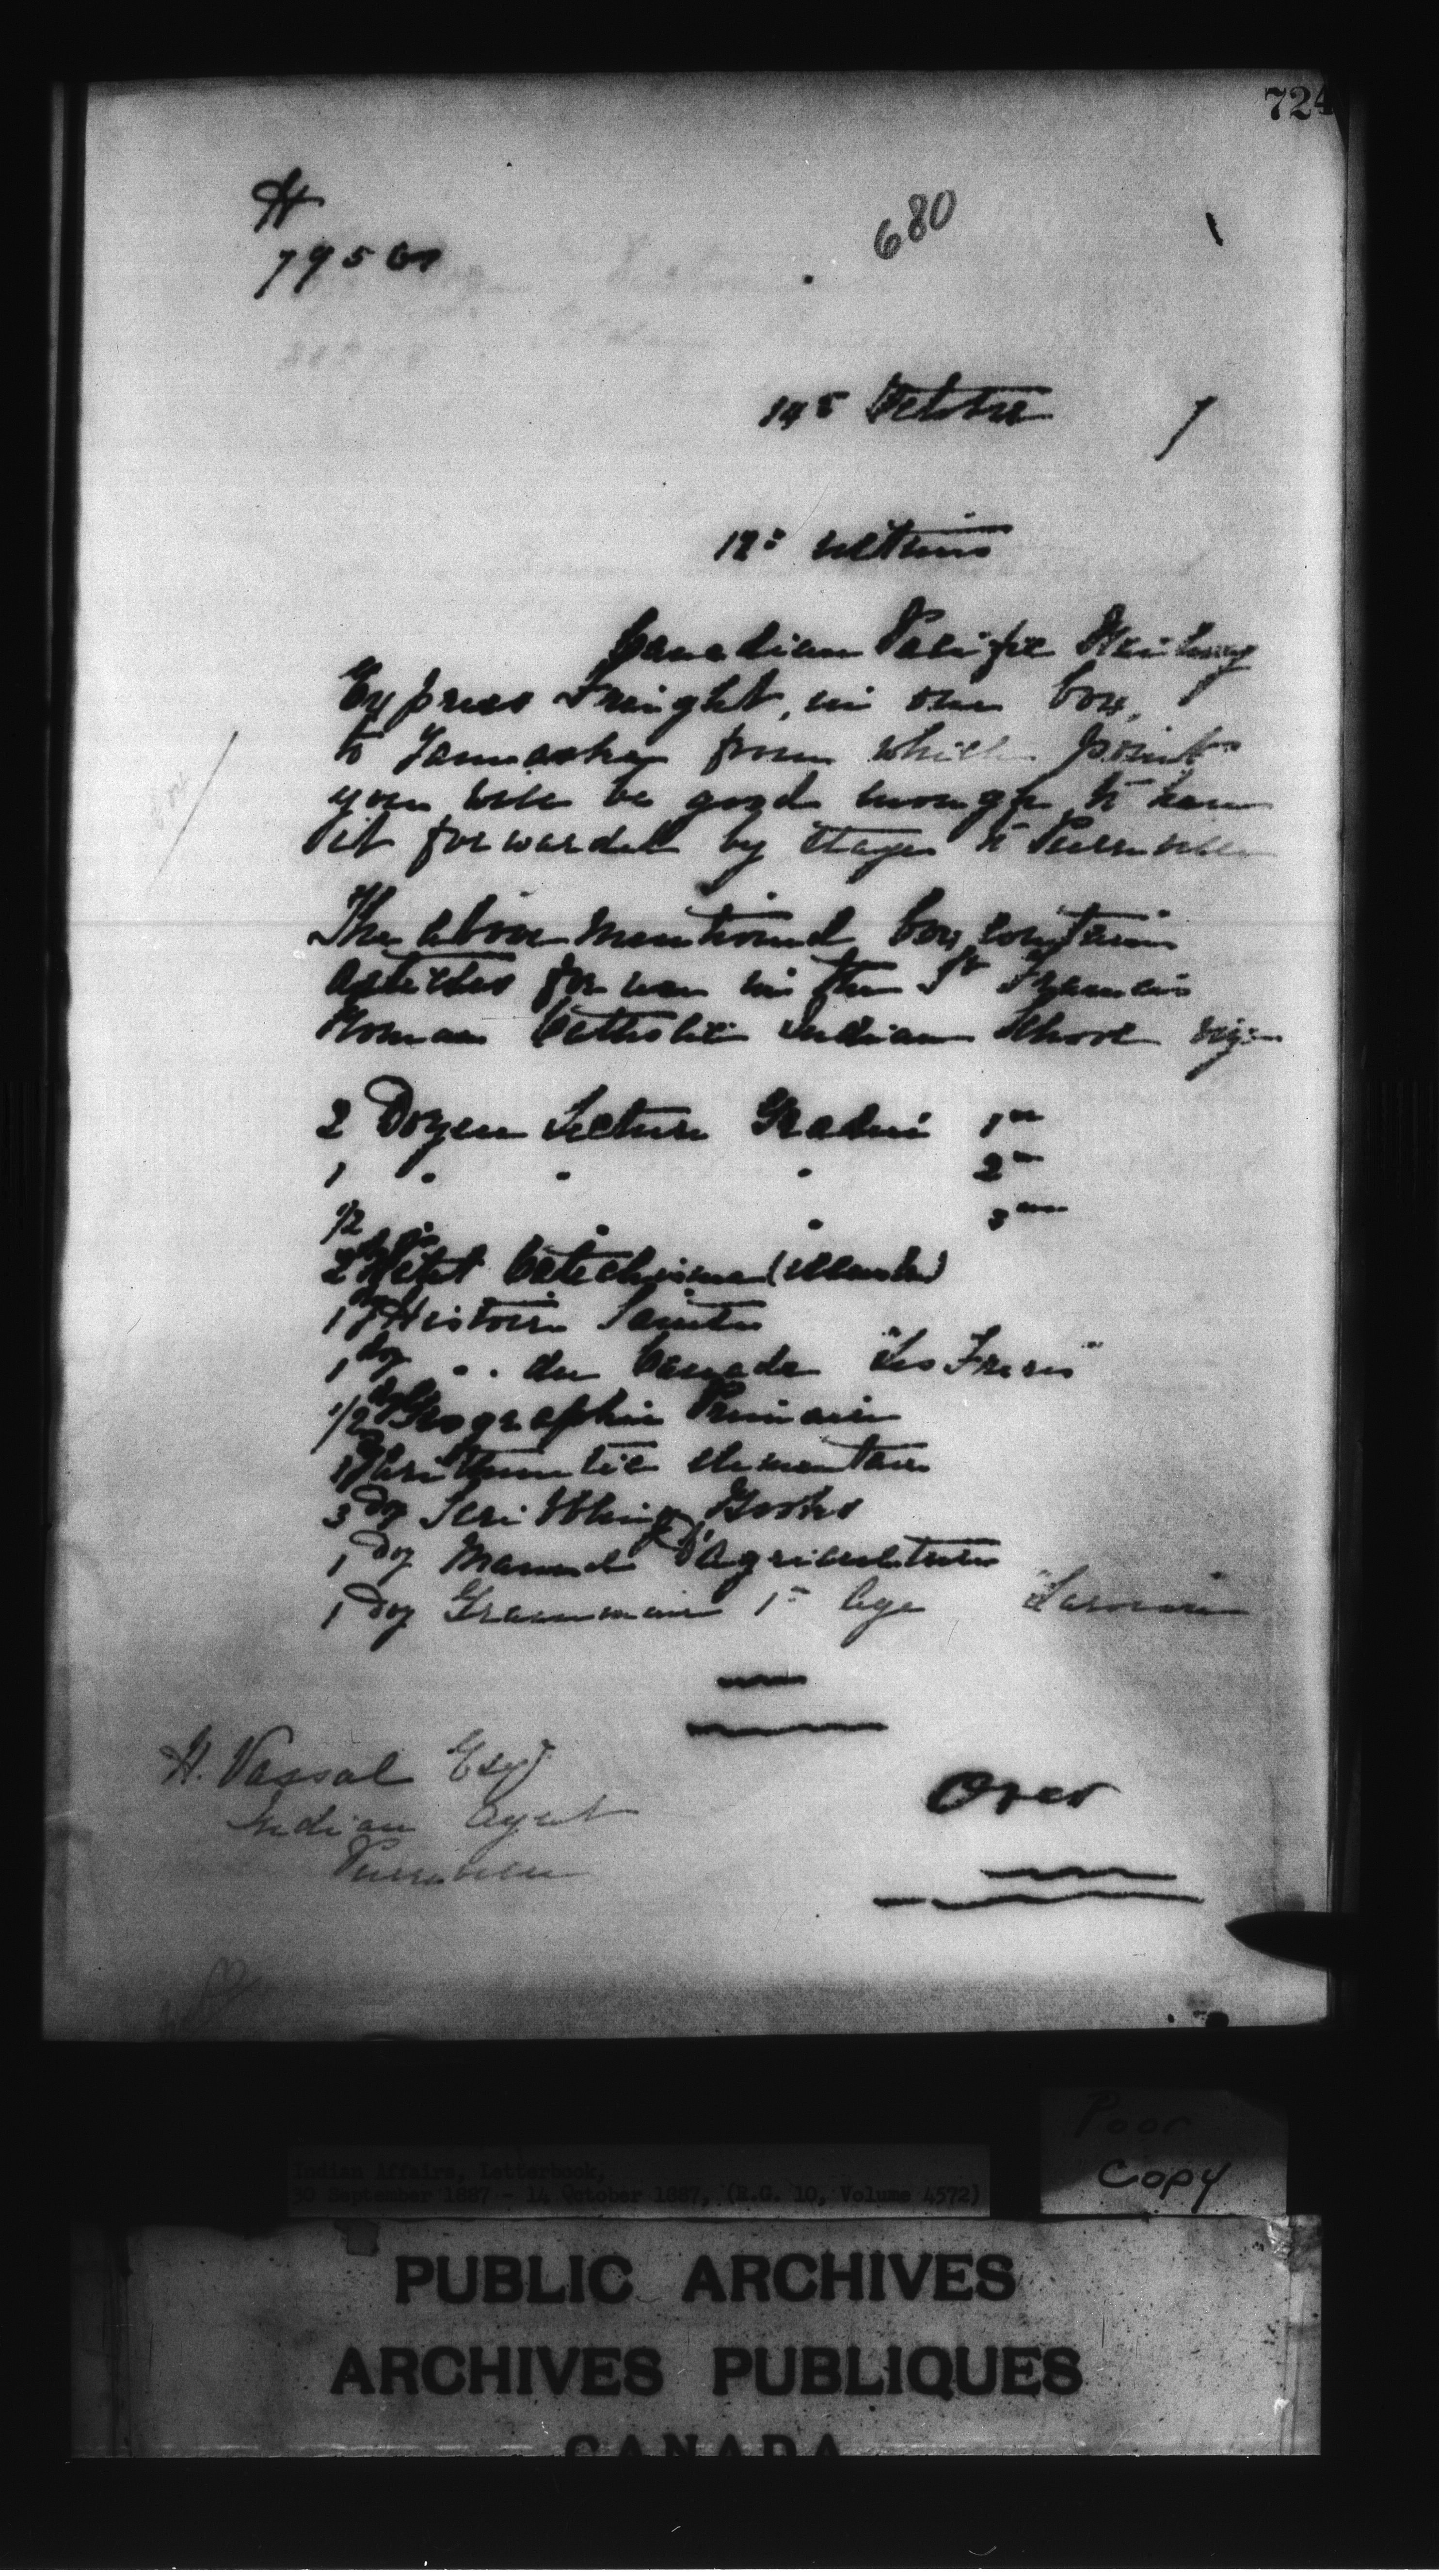 724
H
680
795
14th October 7
12th ultimo
Canadian Pacific Railway
Express Freight, in one box,
to Yamaska from which point
you will be good enough to have
it forwarded by stage to Pierreville
The above mentioned box contains
articles for use in the St Francis
Roman Catholic Indian School viz:
2 Dozen Lecture Graduée 1re
1 " " " 2me
1/2 " " 3me
2 doz Petit Catechisme
1 doz Histoire Sainte
1 doz " " du Canada "Les Freres"
1/2 doz Geographie Primaire
1 doz Arithmetic elementaire
3 Doz Scribbling Books
1 Doz Manuel d'Agriculture
1 Doz Grammaire 1r Age Larousse
H. Vassal Esqr
Indian Agent
Pierreville
Over
Poor
Copy
Indian Affairs, Letterbook,
30 September 1887 - 14 October 1887, (R.G. 10, Volume 4572)
PUBLIC ARCHIVES
ARCHIVES PUBLIQUES
CANADA